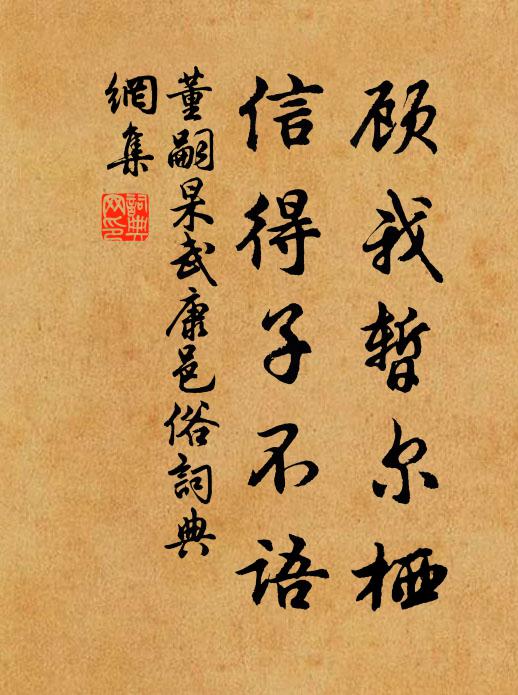 顾我暂尔栖
信得子不语
董嗣杲武康邑俗詞典
網集
詞典
网印